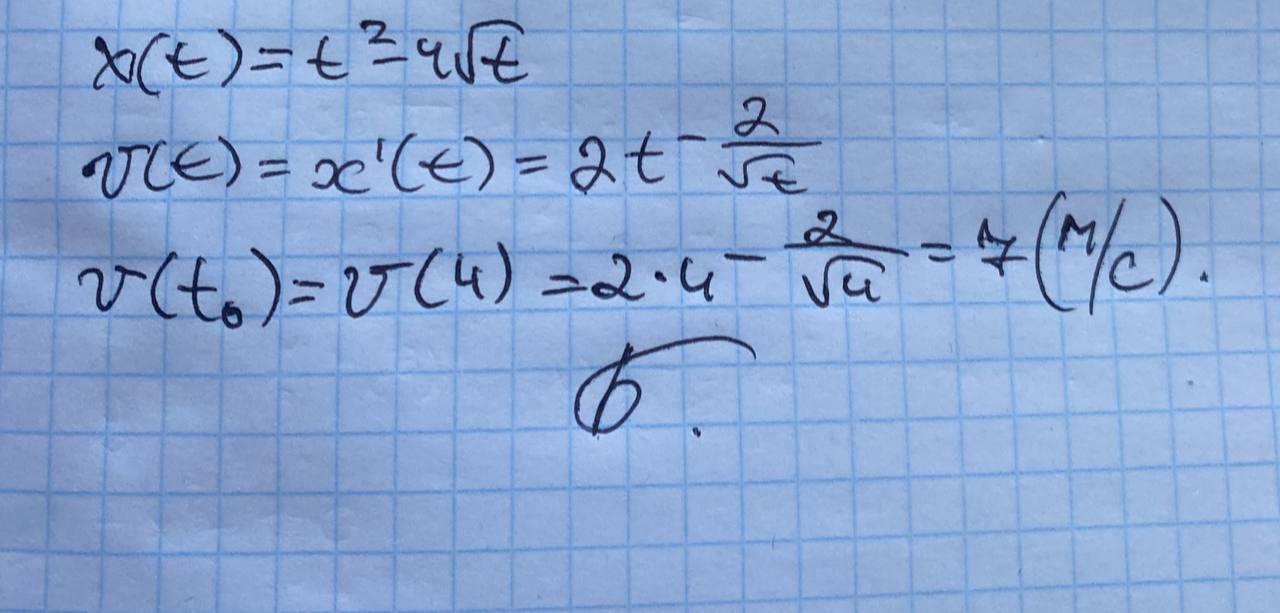 x(t) = t² - 4√t
v(t) = x'(t) = 2t - 2/√t
v(t₀) = v(4) = 2·4 - 2/√4 = 7 (м/с).
б.